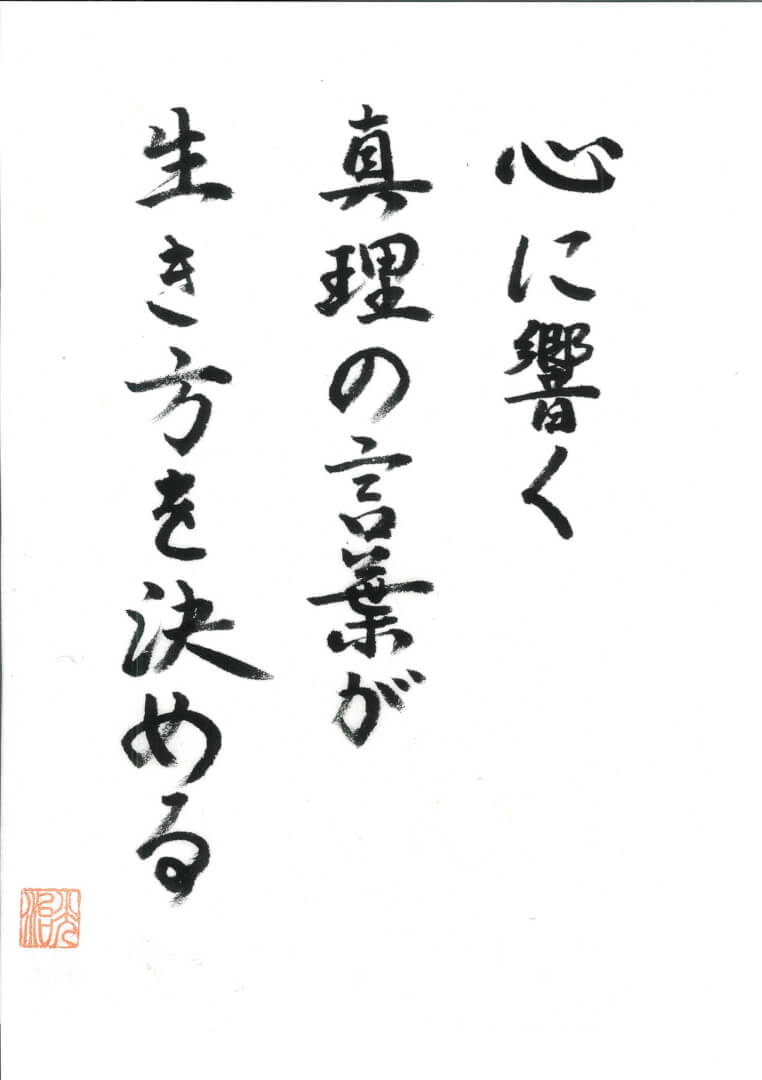 心に響く
真理の言葉が
生き方を決める